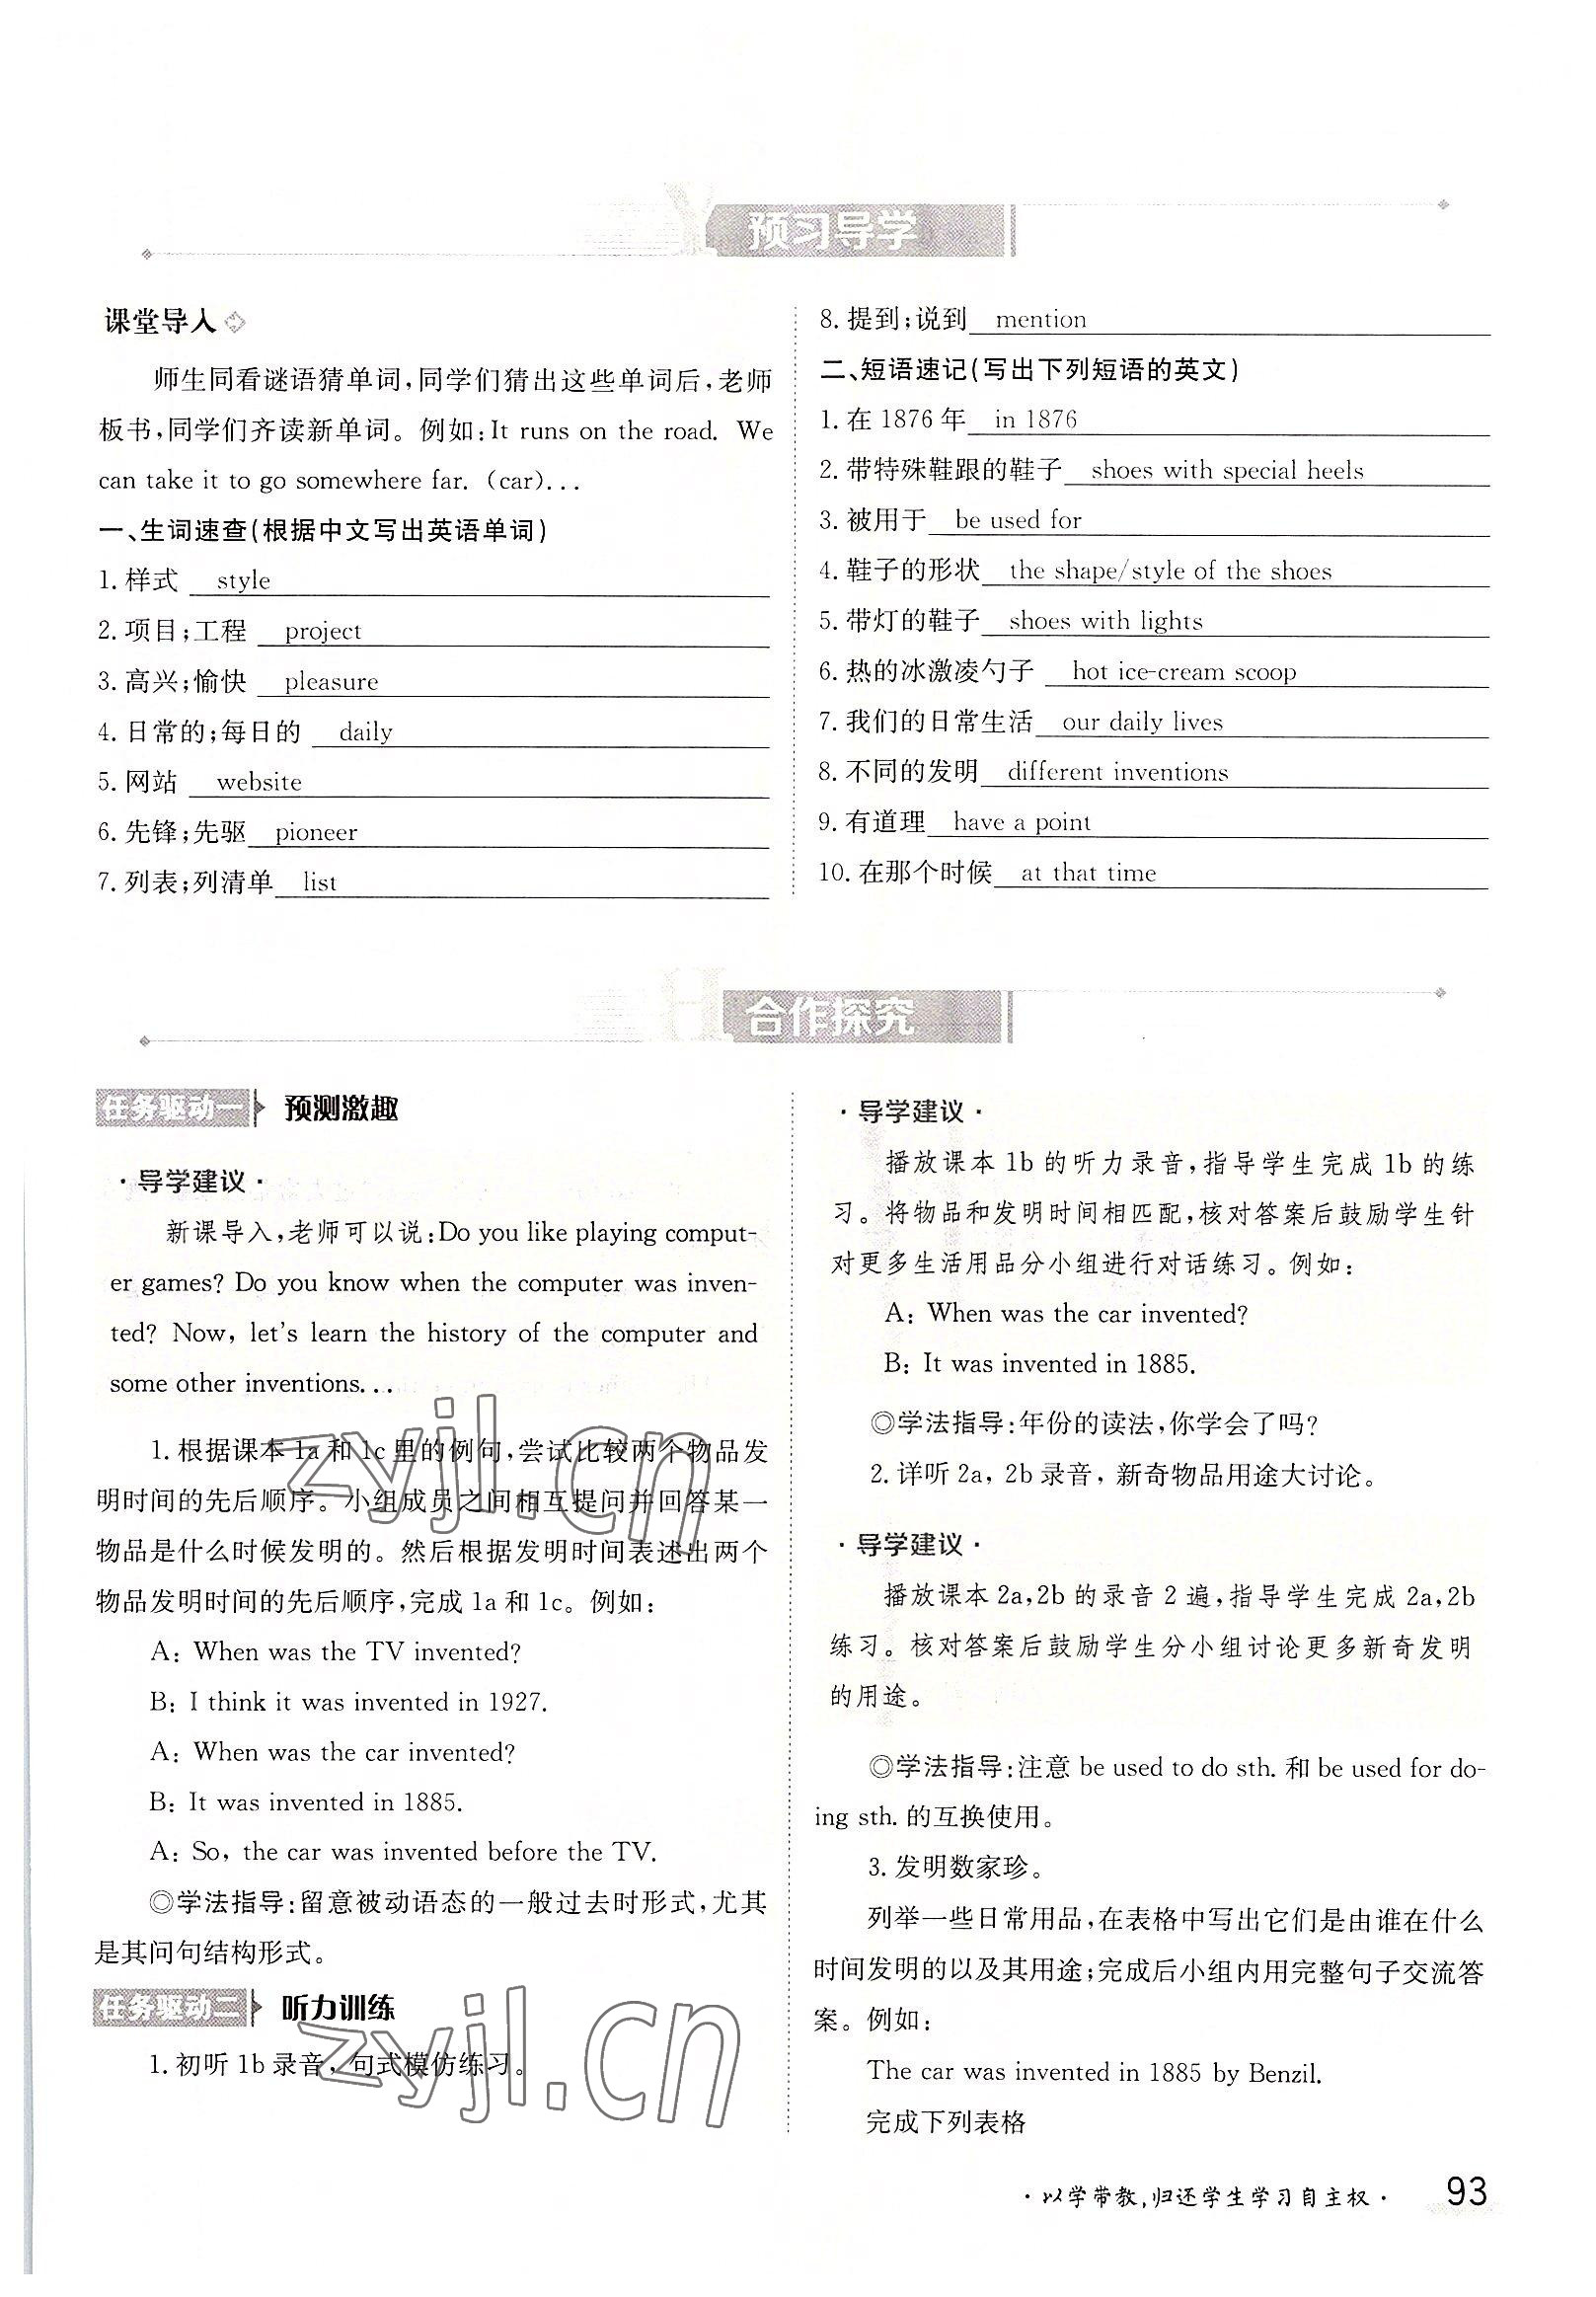 预习导学
课堂导入
师生同看谜语猜单词,同学们猜出这些单词后,老师
板书,同学们齐读新单词。例如:It runs on the road. We
can take it to go somewhere far. (car)...
一、生词速查(根据中文写出英语单词)
1. 样式 style
2. 项目;工程 project
3. 高兴;愉快 pleasure
4. 日常的;每日的 daily
5. 网站 website
6. 先锋;先驱 pioneer
7. 列表;列清单 list
8. 提到;说到 mention
二、短语速记(写出下列短语的英文)
1. 在 1876 年 in 1876
2. 带特殊鞋跟的鞋子 shoes with special heels
3. 被用于 be used for
4. 鞋子的形状 the shape/style of the shoes
5. 带灯的鞋子 shoes with lights
6. 热的冰激凌勺子 hot ice-cream scoop
7. 我们的日常生活 our daily lives
8. 不同的发明 different inventions
9. 有道理 have a point
10. 在那个时候 at that time
合作探究
任务驱动一 预测激趣
·导学建议·
新课导入,老师可以说:Do you like playing comput-
er games? Do you know when the computer was inven-
ted? Now, let's learn the history of the computer and
some other inventions...
1. 根据课本 1a 和 1c 里的例句,尝试比较两个物品发
明时间的先后顺序。小组成员之间相互提问并回答某一
物品是什么时候发明的。然后根据发明时间表述出两个
物品发明时间的先后顺序,完成 1a 和 1c。例如:
A: When was the TV invented?
B: I think it was invented in 1927.
A: When was the car invented?
B: It was invented in 1885.
A: So, the car was invented before the TV.
◎学法指导:留意被动语态的一般过去时形式,尤其
是其问句结构形式。
任务驱动二 听力训练
1. 初听 1b 录音,句式模仿练习。
·导学建议·
播放课本 1b 的听力录音,指导学生完成 1b 的练
习。将物品和发明时间相匹配,核对答案后鼓励学生针
对更多生活用品分小组进行对话练习。例如:
A: When was the car invented?
B: It was invented in 1885.
◎学法指导:年份的读法,你学会了吗?
2. 详听 2a, 2b 录音,新奇物品用途大讨论。
·导学建议·
播放课本 2a,2b 的录音 2 遍,指导学生完成 2a,2b
练习。核对答案后鼓励学生分小组讨论更多新奇发明
的用途。
◎学法指导:注意 be used to do sth. 和 be used for do-
ing sth. 的互换使用。
3. 发明数家珍。
列举一些日常用品,在表格中写出它们是由谁在什么
时间发明的以及其用途;完成后小组内用完整句子交流答
案。例如:
The car was invented in 1885 by Benzil.
完成下列表格
·以学带教,归还学生学习自主权· 93
zyjl.cn
zyjl.cn